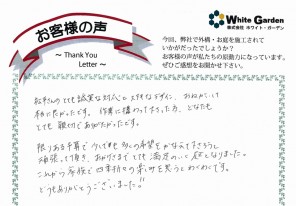 お客様の声
～ Thank You
Letter ～
White Garden
株式会社 ホワイト・ガーデン
今回、弊社で外構・お庭を施工されて
いかがだったでしょうか？
お客様の声が私たちの原動力になっています。
ぜひご感想をお聞かせ下さい。
とても 誠実な対応と ステキなデザイン、おねがいして
本当に良かったです。 作業に携わって下さった方、どなたも
とても 親切で ありがたかったです。
限りある予算で 多くの希望をかなえて下さろうと
頑張って頂き、おかげさまで とても 満足のいく 庭となりました。
これから 家族で 四季折々の 楽しむ 思うと わくわくです。
どうもありがとうございました!!